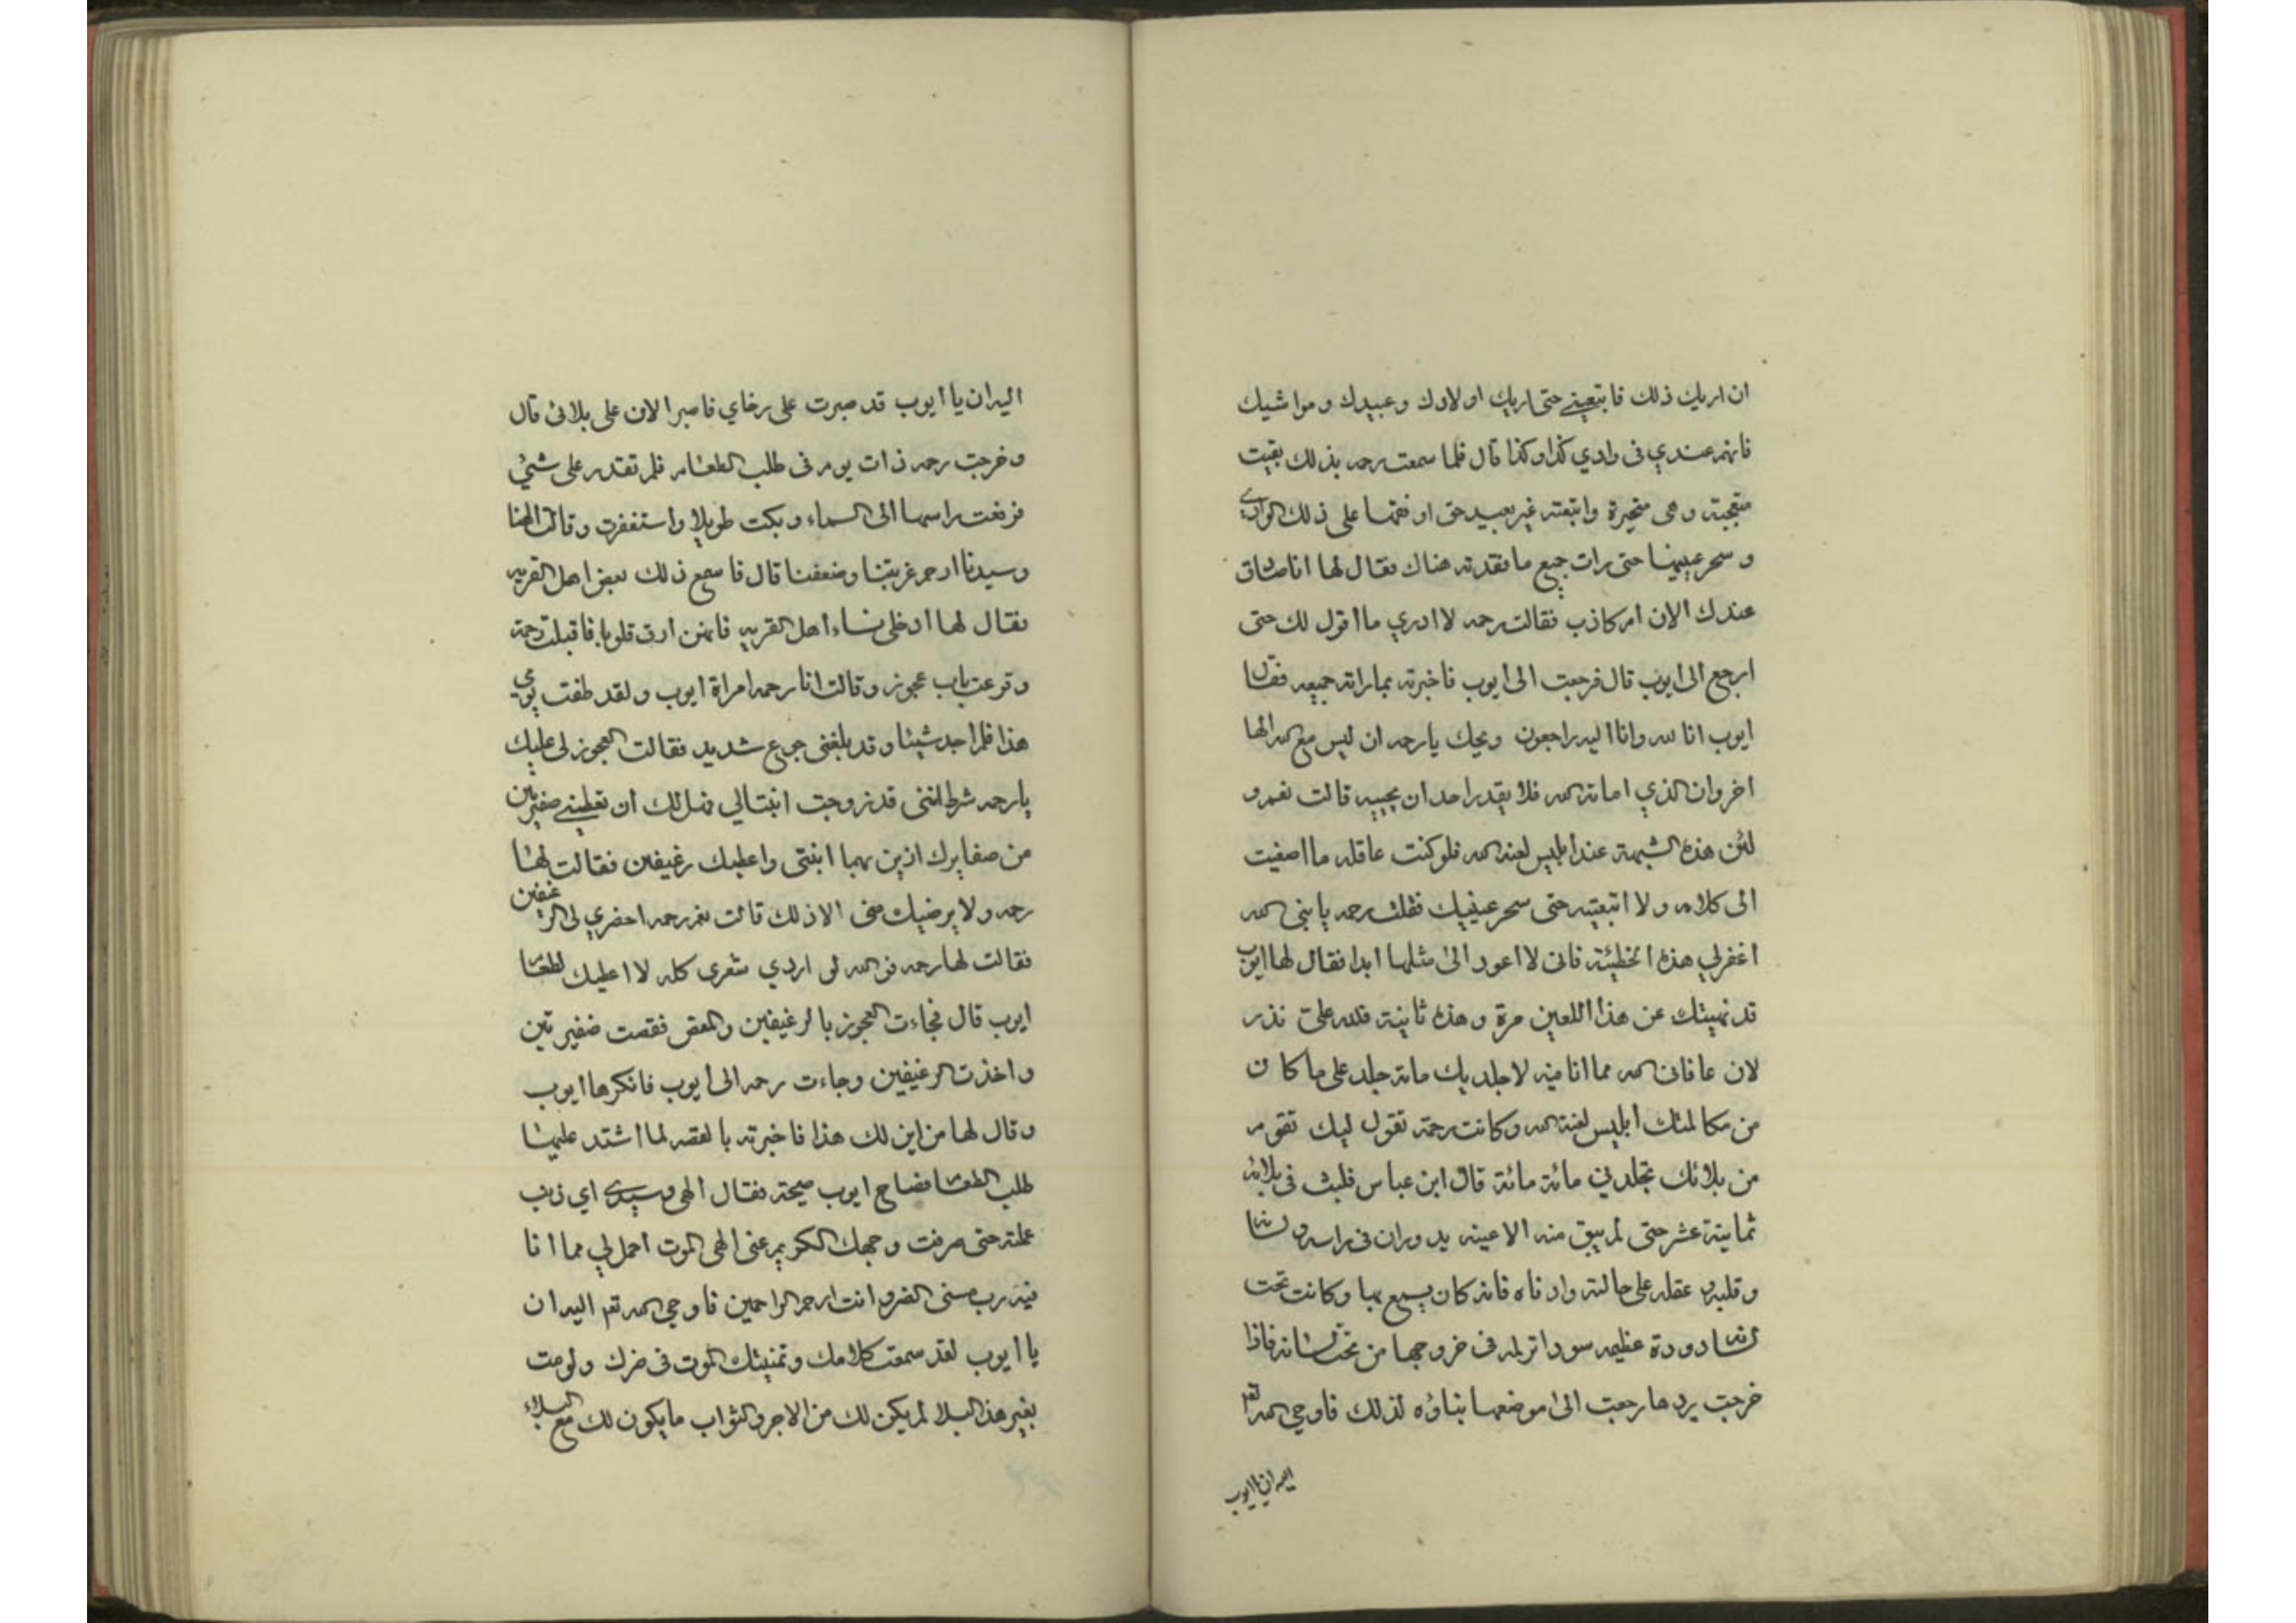 ان اريك ذلك فاتبعيني حتى اريك اولادك وعبيدك ومواشيك
فانهم عندي في وادي كذا وكذا قال فلما سمعت رحمه بذلك بقيت
متعجبة وهي متحيرة واتبعته غير بعيد حتى اوقفها على ذلك الوادي
وسحر عينيها حتى رات جميع ما فقدته هناك فقال لها انا صادق
عندك الان ام كاذب فقالت رحمه لا ادري ما اقول لك حتى
ارجع الى ايوب قال فرجعت الى ايوب فاخبرته بما راته جميعه فقال
ايوب انا لله وانا اليه راجعون ويحك يا رحمه ان ليس مع الله الها
اخر وان الذي اماته الله فلا يقدر احد ان يحييه قالت نعم و
لئن هذه الشبهة عند ابليس لعنه الله فلو كنت عاقله ما اصغيت
الى كلامه ولا اتبعتيه حتى سحر عينيك فقلت رحمه يا نبي الله
اغفر لي هذه الخطيئة فاني لا اعود الى مثلها ابدا فقال لها ايوب
قد نهيتك عن هذا اللعين مرة وهذه ثانية فلله علي نذر
لان عافاني الله مما انا فيه لاجلديك مائة جلد على ما كان
من مكالمتك ابليس لعنة الله وكانت رحمة تقول ليك تقوم
من بلائك تجلدني مائة مائة قال ابن عباس فلبث في بلائه
ثمانية عشر حتى لم يبق منه الا عينه يدوران في راسه ولسانه
وقلبه وعقله على حالته واذناه فانه كان يسمع بها وكانت تحت
لسانه دودة عظيمه سودا تؤلمه في خروجها من تحت لسانه فاذا
خرجت يردها رجعت الى موضعها بتاوه لذلك فاوحى الله تعم
اليه ان يا ايوب
اليه ان يا ايوب قد صبرت على رخاي فاصبر الان على بلائي قال
وخرجت رحمه ذات يوم في طلب الطعام فلم تقدر على شيئ
فرفعت راسها الى السماء وبكت طويلا واستغفرت وقالت الهنا
وسيدنا ارحم غربتنا وضعفنا قال فاسمع ذلك بعض اهل القريه
فقال لها ادخلي نساء اهل القريه فانهن ارق قلوبا فاقبلت رحمة
وقرعت باب عجوز وقالت انا رحمه امراة ايوب ولقد طفت يومي
هذا فلم اجد شيئا وقد بلغني جوع شديد فقالت العجوز لي عليك
يا رحمه شرط انني قد زوجت ابنتا لي فهل لك ان تعطيني صفيرتين
من صفايرك ازين بهما ابنتي واعطيك رغيفين فقالت لها
رحمه ولا يرضيك مني الا ذلك قالت نعم رحمه احضري لي الرغيفين
فقالت لها رحمه فو الله لو اردي شعرى كله لا اعطيك لطعام
ايوب قال فجاءت العجوز بالرغيفين والمقص فقصت ضفيرتين
واخذت الرغيفين وجاءت رحمه الى ايوب فانكرها ايوب
وقال لها من اين لك هذا فاخبرته بالقصه لما اشتد عليها
طلب الطعام فصاح ايوب صيحة فقال الهي وسيدي اي ذنب
عملته حتى صرفت وجهك الكريم عني الهي الموت اجمل لي مما انا
فيه رب مسني الضر وانت ارحم الراحمين فاوحى الله تعم اليه ان
يا ايوب لقد سمعت كلامك وتمنيتك الموت في ضرك ولو مت
بغير هذا البلا لم يكن لك من الاجر والثواب ما يكون لك مع البلاء